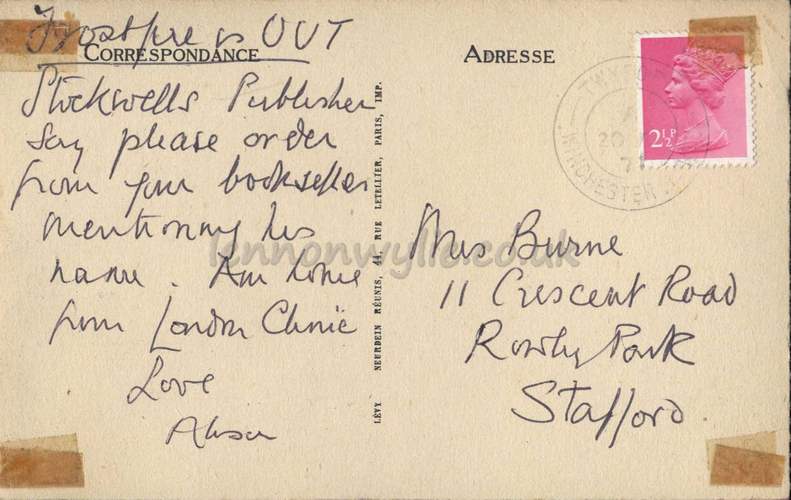 Frostfire is OUT
CORRESPONDANCE
Stockwells Publisher
say please order
from your bookseller
mentioning his
name. Am home
from London Clinic
Love
Alison
LÉVY NEURDEIN RÉUNIS, 44, RUE LETELLIER, PARIS, IMP.
ADRESSE
TWYFORD
20
71
WINCHESTER
2½P
Mrs Burne
11 Crescent Road
Rowley Park
Stafford.
lennonwylie.co.uk